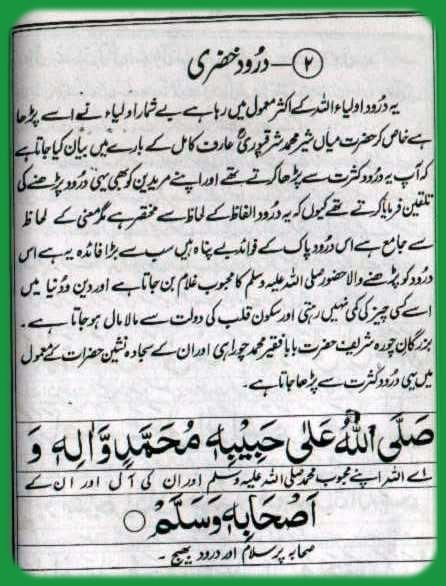 ۲ — درود خضری
یہ درود اولیاء اللہ کے اکثر معمول میں رہا ہے بے شمار اولیاء نے اسے پڑھا
ہے خاص کر حضرت میاں شیر محمد شرقپوریؒ عارف کامل کے بارے میں بیان کیا جاتا ہے
کہ آپ یہ درود کثرت سے پڑھا کرتے تھے اور اپنے مریدین کو بھی یہی درود پڑھنے کی
تلقین فرمایا کرتے تھے کیوں کہ یہ درود الفاظ کے لحاظ سے مختصر ہے مگر معنی کے لحاظ
سے جامع ہے اس درود پاک کے فوائد بے پناہ ہیں سب سے بڑا فائدہ یہ ہے اس
درود کو پڑھنے والا حضور صلی اللہ علیہ وسلم کا محبوب غلام بن جاتا ہے اور دین و دنیا میں
اسے کسی چیز کی کمی نہیں رہتی اور سکون قلب کی دولت سے مالا مال ہو جاتا ہے۔
بزرگان چورہ شریف حضرت بابا فقیر محمد چوراہی اور ان کے سجادہ نشین حضرات کے معمول
میں یہی درود کثرت سے پڑھا جاتا ہے۔
صَلَّى اللّٰهُ عَلٰى حَبِيْبِهٖ مُحَمَّدٍ وَّاٰلِهٖ وَ
اے اللہ اپنے محبوب محمد صلی اللہ علیہ وسلم اور ان کی آل اور ان کے
اَصْحَابِهٖ وَسَلَّمْ ○
صحابہ پر سلام اور درود بھیج ۔